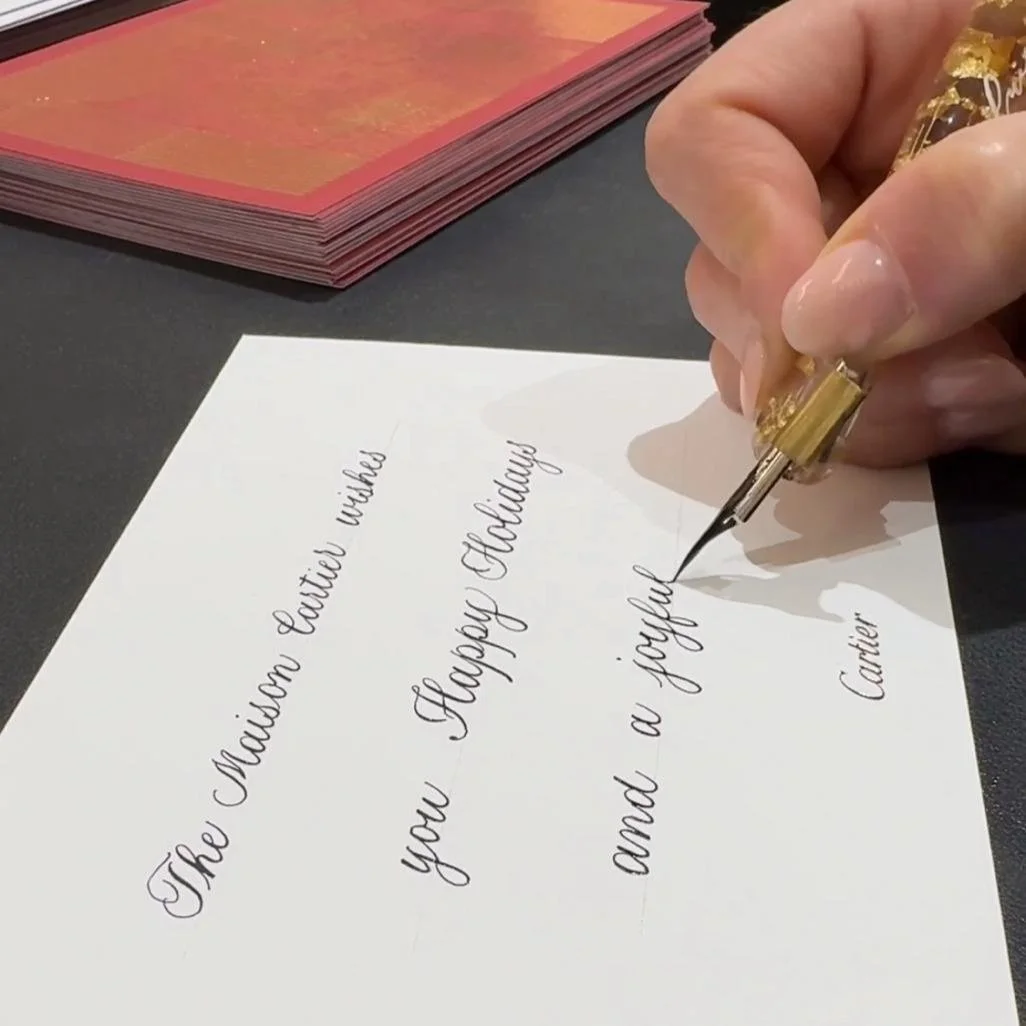 The Maison Cartier wishes
you Happy Holidays
and a joyful
Cartier